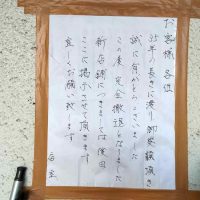 お客様 各位
35年の長きに渡り御愛顧頂き
誠に有がとうございました
この度 完全撤退となりました
新店舗につきましては後日
ここに掲示させて頂きます
宜しくお願い致します
店主